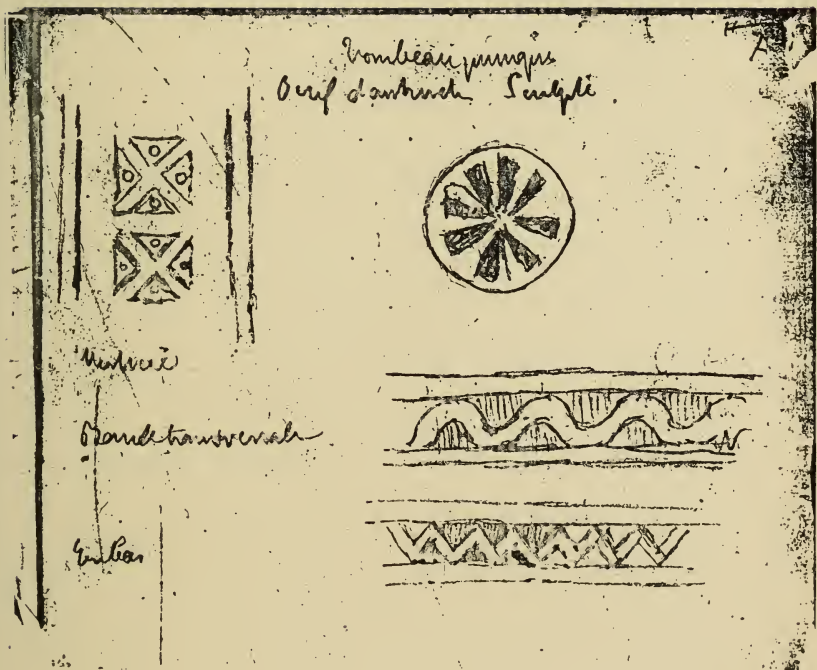 Tombeau punique
Oeuf d'autruche Sculpté
Bande transversale
En bas